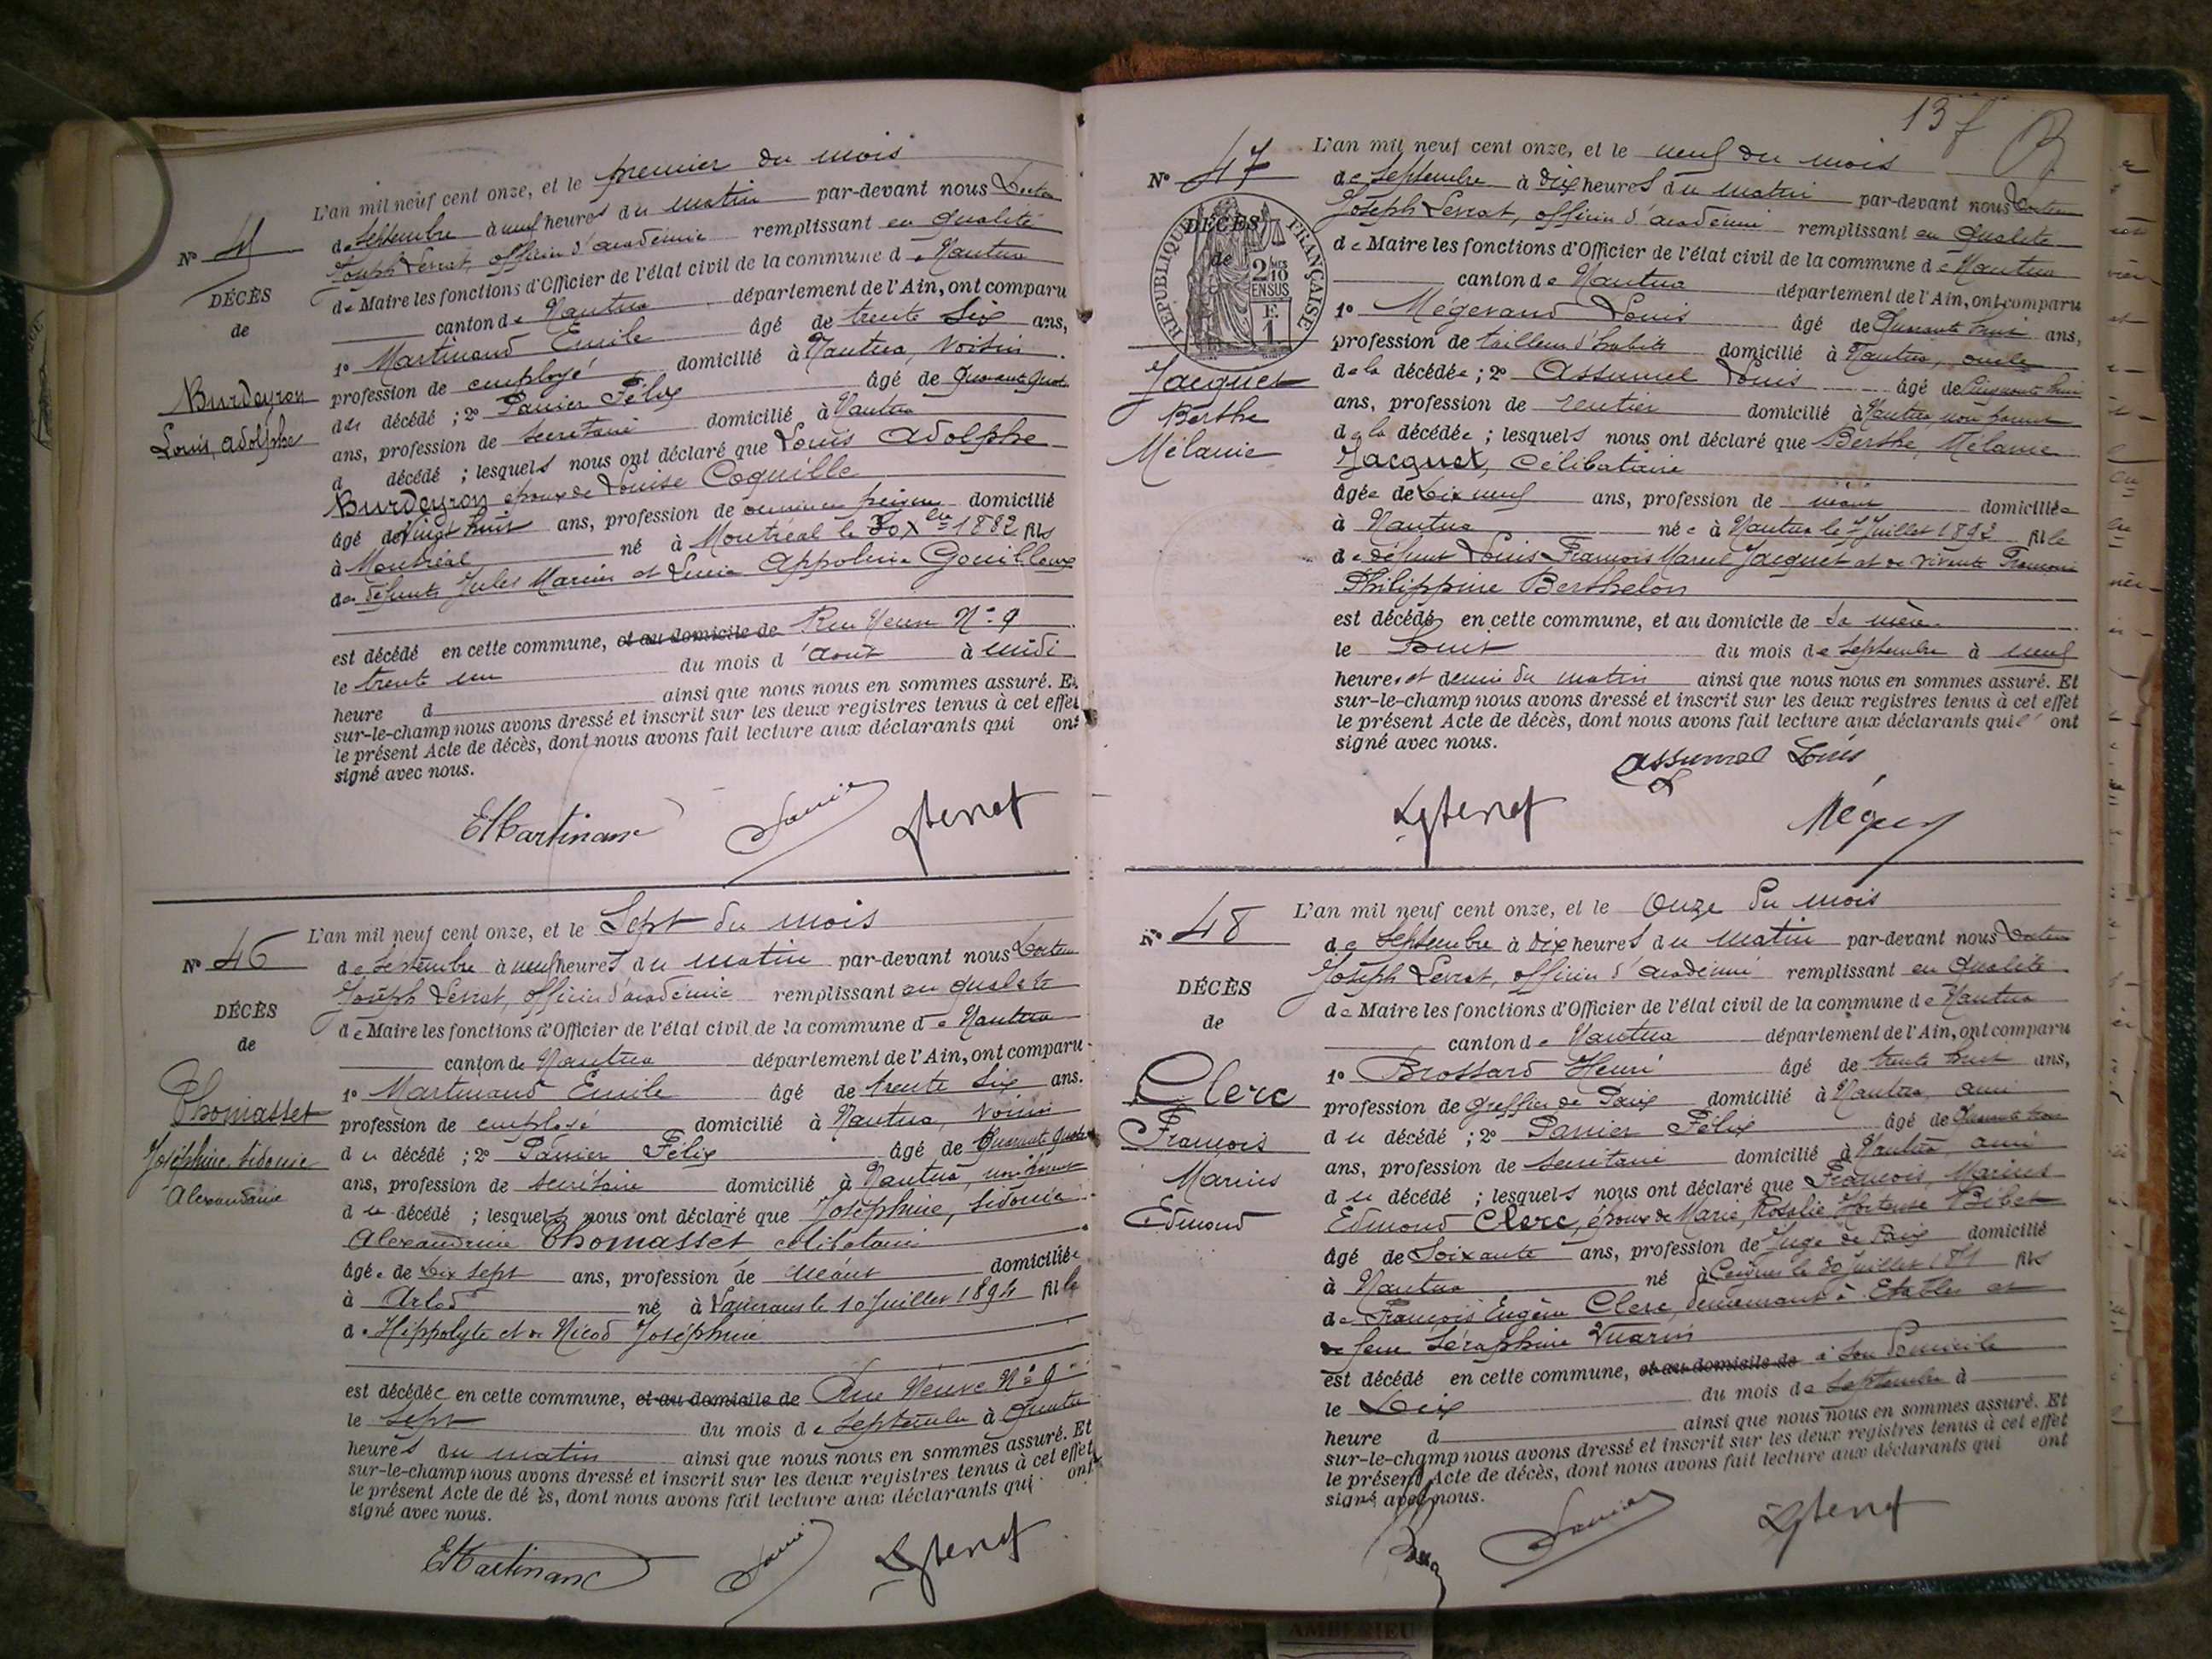 L'an mil neuf cent onze, et le premier du mois
N° 45
de Septembre à neuf heures du matin par-devant nous Docteur
Joseph Levrat, officier d'académie remplissant en qualité
DÉCÈS
de Maire les fonctions d'Officier de l'état civil de la commune de Nantua
de
canton de Nantua département de l'Ain, ont comparu
1° Martinand Emile âgé de trente six ans,
profession de employé domicilié à Nantua, voisin
Burdeyron
Louis, Adolphe
du décédé ; 2° Panier Félix âgé de Quarante quatre
ans, profession de secrétaire domicilié à Nantua
d décédé ; lesquels nous ont déclaré que Louis Adolphe
Burdeyron époux de Louise Coquille
âgé de Vingt huit ans, profession de ouvrier en peignes domicilié
à Montréal né à Montréal le 30 Xbre 1882 fils
de défunts Jules Marius et Lucie Appolonie Gouilloux
est décédé en cette commune, et au domicile de Rue Neuve N° 9
le trente un du mois d'Août à midi
heure d ainsi que nous nous en sommes assuré. Et
sur-le-champ nous avons dressé et inscrit sur les deux registres tenus à cet effet
le présent Acte de décès, dont nous avons fait lecture aux déclarants qui ont
signé avec nous.
EMartinand Panier
L'an mil neuf cent onze, et le Sept du mois
N° 46
de Septembre à neuf heures du matin par-devant nous Docteur
Joseph Levrat, officier d'académie remplissant en qualité
DÉCÈS
de Maire les fonctions d'Officier de l'état civil de la commune de Nantua
de
canton de Nantua département de l'Ain, ont comparu
1° Martinand Emile âgé de trente six ans.
Thomasset
Joséphine, Sidonie
Alexandrine
profession de employé domicilié à Nantua, voisin
du décédé ; 2° Panier Félix âgé de Quarante quatre
ans, profession de secrétaire domicilié à Nantua, non parent
du décédé ; lesquels nous ont déclaré que Joséphine, Sidonie
Alexandrine Thomasset célibataire
âgée de Dix sept ans, profession de néant domiciliée
à Arlod né à Vaurans le 10 Juillet 1894 fille
de Hippolyte et de Nicod Joséphine
est décédée en cette commune, et au domicile de Rue Neuve N° 9
le Sept du mois de Septembre à Quatre
heures du matin ainsi que nous nous en sommes assuré. Et
sur-le-champ nous avons dressé et inscrit sur les deux registres tenus à cet effet
le présent Acte de dé ès, dont nous avons fait lecture aux déclarants qui ont
signé avec nous.
EMartinand Panier
13 f
L'an mil neuf cent onze, et le neuf du mois
N° 47
de Septembre à dix heures du matin par-devant nous Docteur
Joseph Levrat, officier d'académie remplissant en Qualité
RÉPUBLIQUE FRANÇAISE
DÉCÈS
de
2/10 EN SUS
F. 1
de Maire les fonctions d'Officier de l'état civil de la commune de Nantua
canton de Nantua département de l'Ain, ont comparu
1° Mégevand Louis âgé de Quarante trois ans,
profession de tailleur d'habits domicilié à Nantua, oncle
Jacquet
Berthe
Mélanie
de la décédée ; 2° Assumel Louis âgé de Cinquante huit
ans, profession de rentier domicilié à Nantua, non parent
de la décédée ; lesquels nous ont déclaré que Berthe, Mélanie
Jacquet, Célibataire
âgée de Dix neuf ans, profession de néant domiciliée
à Nantua née à Nantua le 7 Juillet 1892 fille
de défunt Louis François Marcel Jacquet et de vivante Françoise
Philippine Berthelon
est décédée en cette commune, et au domicile de sa mère
le huit du mois de Septembre à neuf
heures et demie du matin ainsi que nous nous en sommes assuré. Et
sur-le-champ nous avons dressé et inscrit sur les deux registres tenus à cet effet
le présent Acte de décès, dont nous avons fait lecture aux déclarants qui ont
signé avec nous.
Assumel Louis
L'an mil neuf cent onze, et le Onze du mois
N° 48
de Septembre à dix heures du matin par-devant nous Docteur
Joseph Levrat, officier d'académie remplissant en Qualité
DÉCÈS
de Maire les fonctions d'Officier de l'état civil de la commune de Nantua
de
canton de Nantua département de l'Ain, ont comparu
1° Brossard Henri âgé de trente huit ans,
Clerc
François
Marius
Edmond
profession de Greffier de Paix domicilié à Nantua, ami
du décédé ; 2° Panier Félix âgé de Quarante
ans, profession de secrétaire domicilié à Nantua, ami
du décédé ; lesquels nous ont déclaré que François, Marius
Edmond Clerc, époux de Marie, Rosalie Hortense Bibet
âgé de Soixante ans, profession de Juge de Paix domicilié
à Nantua né à le 30 Juillet 1851 fils
de François Eugène Clerc, demeurant à Etables et
de feue Séraphine Vuarin
est décédé en cette commune, et au domicile de à son domicile
le Dix du mois de Septembre à
heure d ainsi que nous nous en sommes assuré. Et
sur-le-champ nous avons dressé et inscrit sur les deux registres tenus à cet effet
le présent Acte de décès, dont nous avons fait lecture aux déclarants qui ont
signé avec nous.
Panier
AMBERIEU